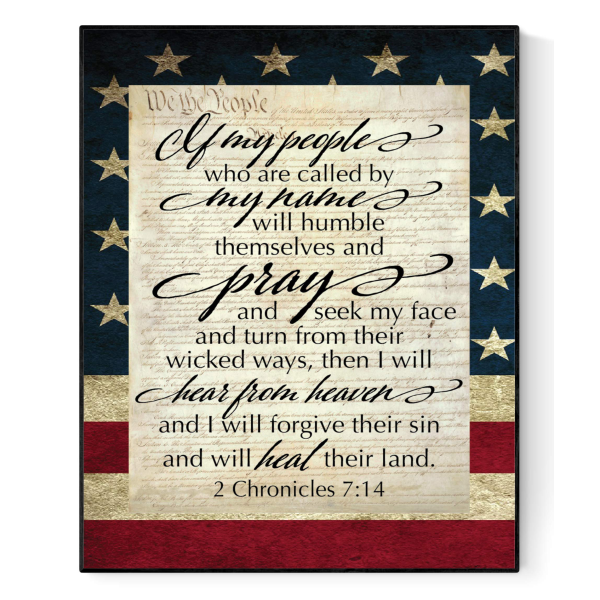 We the People
If my people
who are called by
my name
will humble
themselves and
pray
and seek my face
and turn from their
wicked ways, then I will
hear from heaven
and I will forgive their sin
and will heal their land.
2 Chronicles 7:14